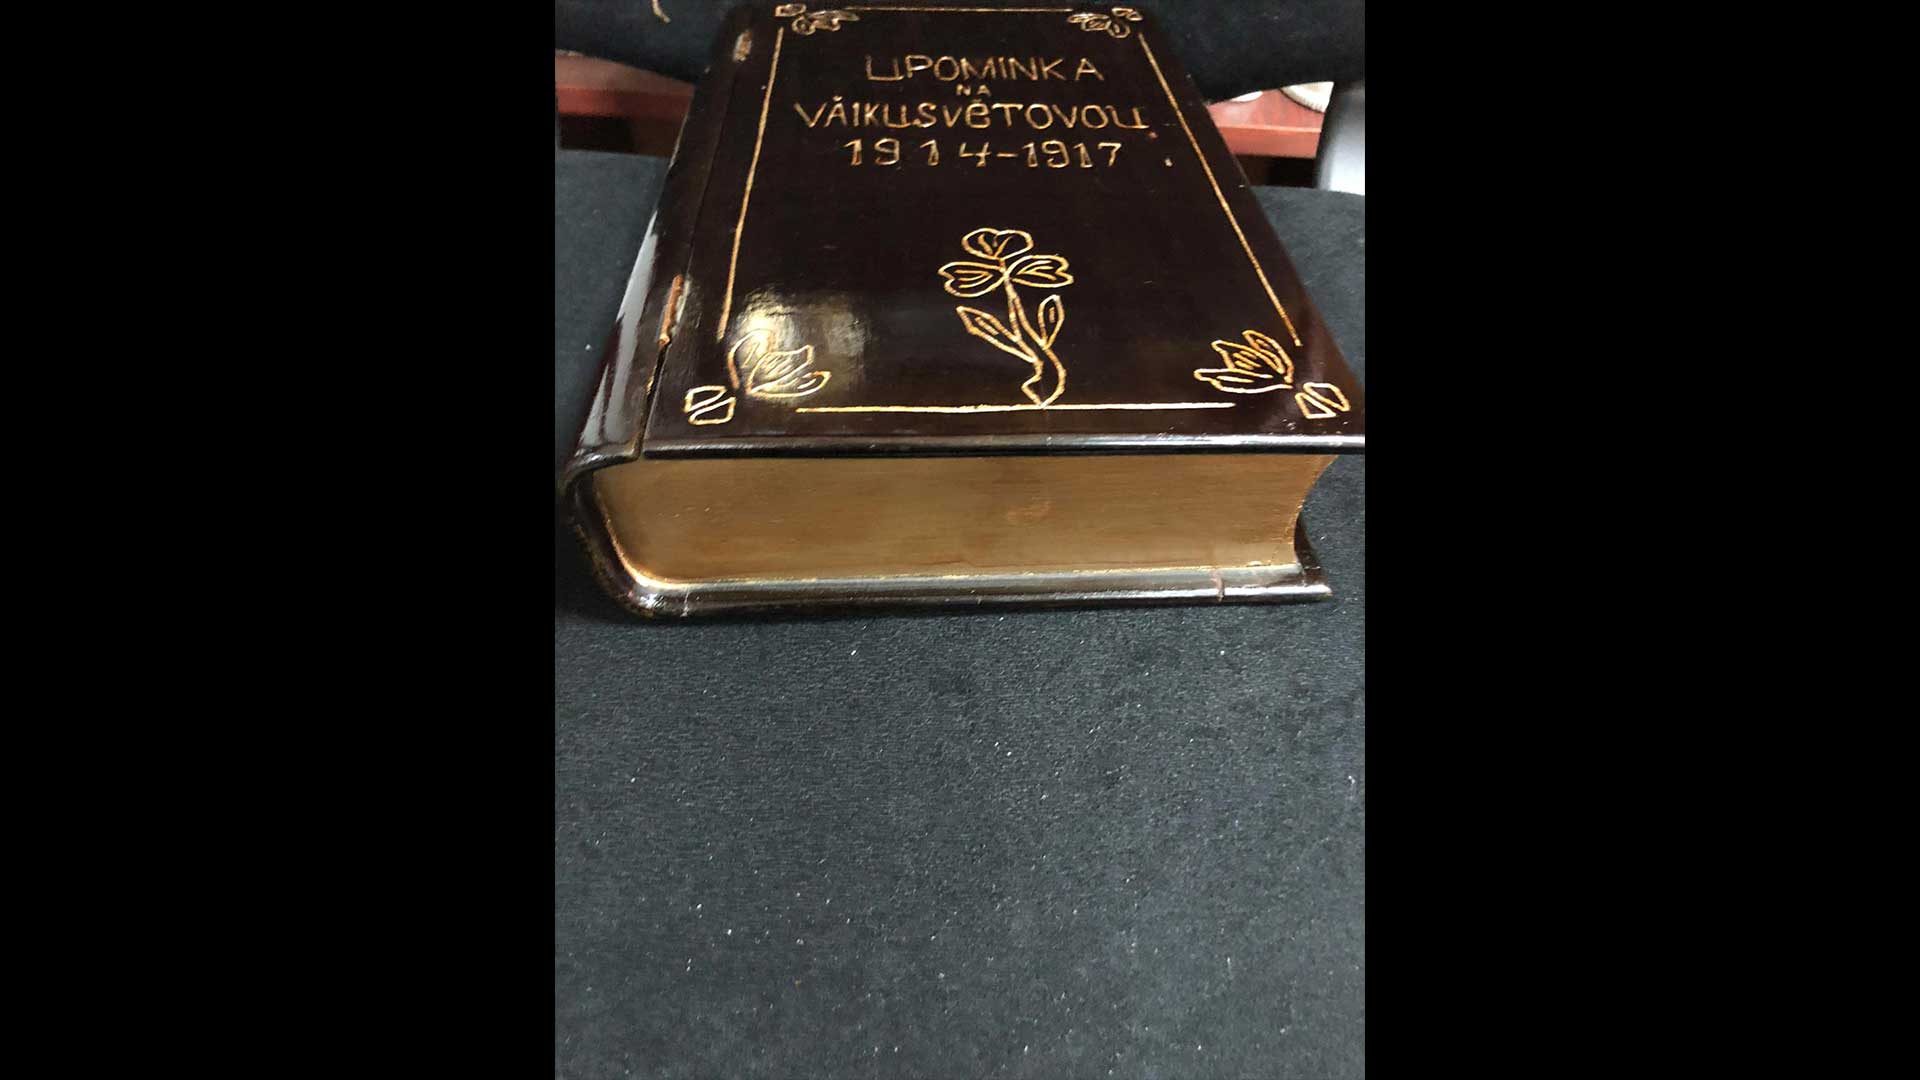 UPOMINKA
NA
VÁlKUSVĚTOVOU
1914-1917